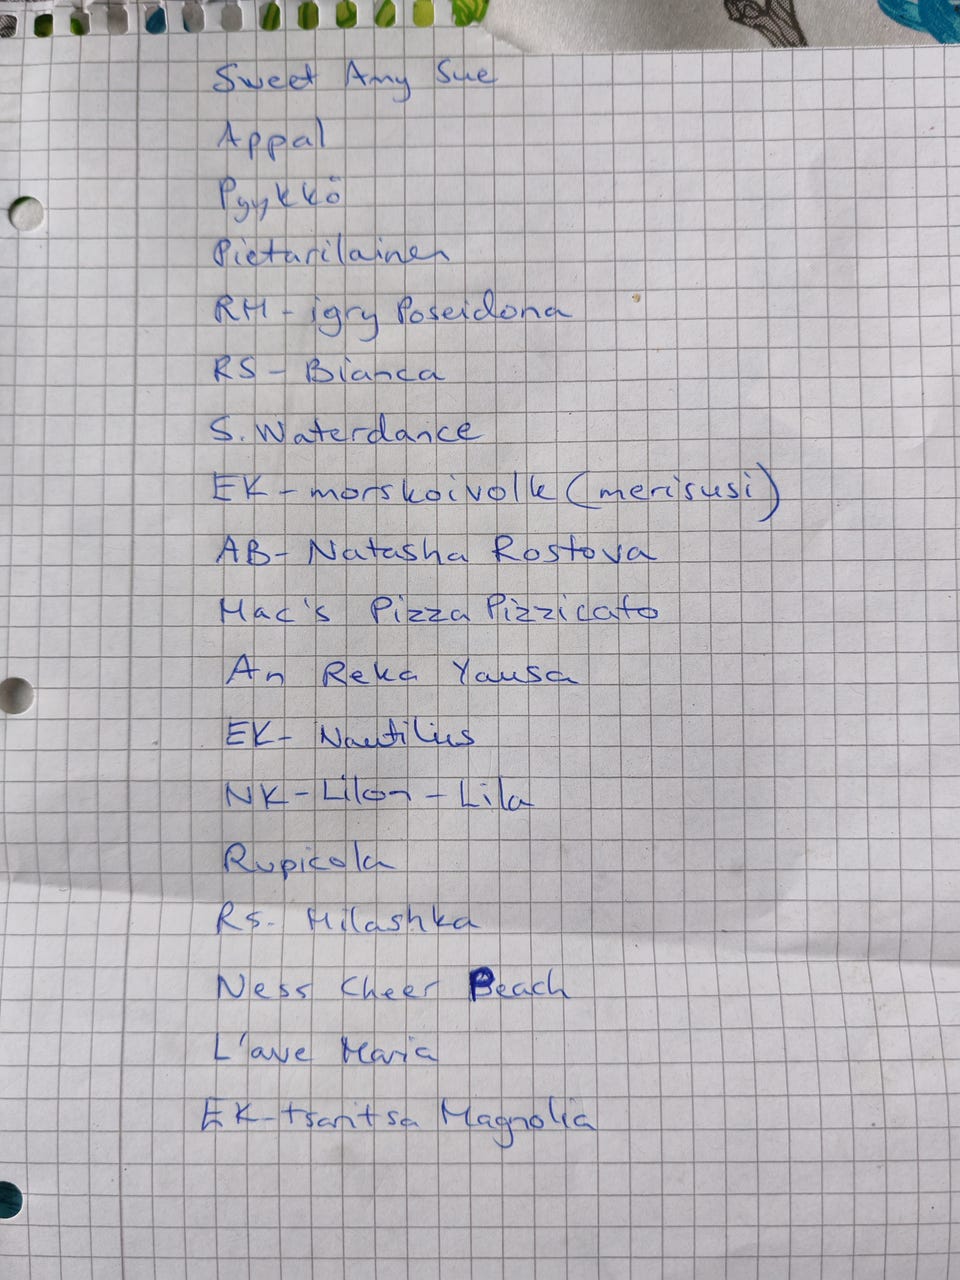 Sweet Amy Sue
Appal
Pyykkö
Pietarilainen
RH - igry Poseidona
RS - Bianca
S. Waterdance
EK - morskoi volk (merisusi)
AB - Natasha Rostova
Mac's Pizza Pizzicato
An Reka Yausa
EK - Nautilius
NK - Lilon - Lila
Rupicola
RS. Milashka
Ness Cheer Beach
L'ave Maria
EK - tsaritsa Magnolia